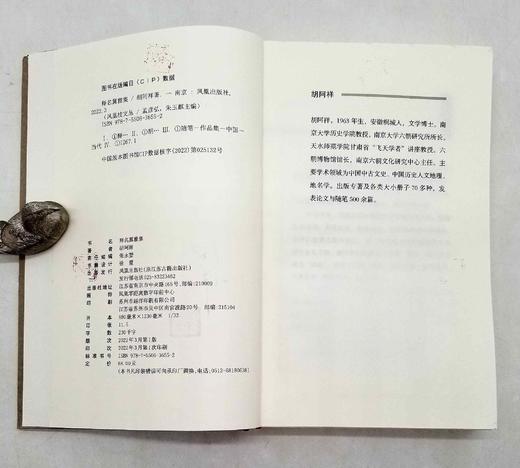 图书在版编目（CIP）数据
释名翼雅集 / 胡阿祥著. -- 南京 : 凤凰出版社,
2022.3
（凤凰枝文丛 / 孟彦弘，朱玉麒主编）
ISBN 978-7-5506-3655-2
Ⅰ. ①释… Ⅱ. ①胡… Ⅲ. ①随笔－作品集－中国－
当代 Ⅳ. ①I267.1
中国版本图书馆CIP数据核字(2022)第025132号
书 名 释名翼雅集
著 者 胡阿祥
凤凰出版社(原江苏古籍出版社)
发行部电话 025-83223462
江苏省南京市中央路165号，邮编：210009
照 排
印 刷 苏州市越洋印刷有限公司
开 本 880毫米×1230毫米 1/32
印 张 11.5
字 数 230千字
版 次 2022年3月第1版
印 次 2022年3月第1次印刷
标准书号 ISBN 978-7-5506-3655-2
定 价 68.00元
(本书凡印装错误可向承印厂调换，电话：0512-68180638)
胡阿祥
胡阿祥，1963年生，安徽桐城人，文学博士，南
京大学历史学院教授，南京大学六朝研究所所长，
天水师范学院甘肃省“飞天学者”讲座教授，六
朝博物馆馆长，南京六朝文化研究中心主任。主
要学术领域为中国中古文史、中国历史人文地理、
地名学。出版专著及各类大小册子70多种，发
表论文与随笔500余篇。